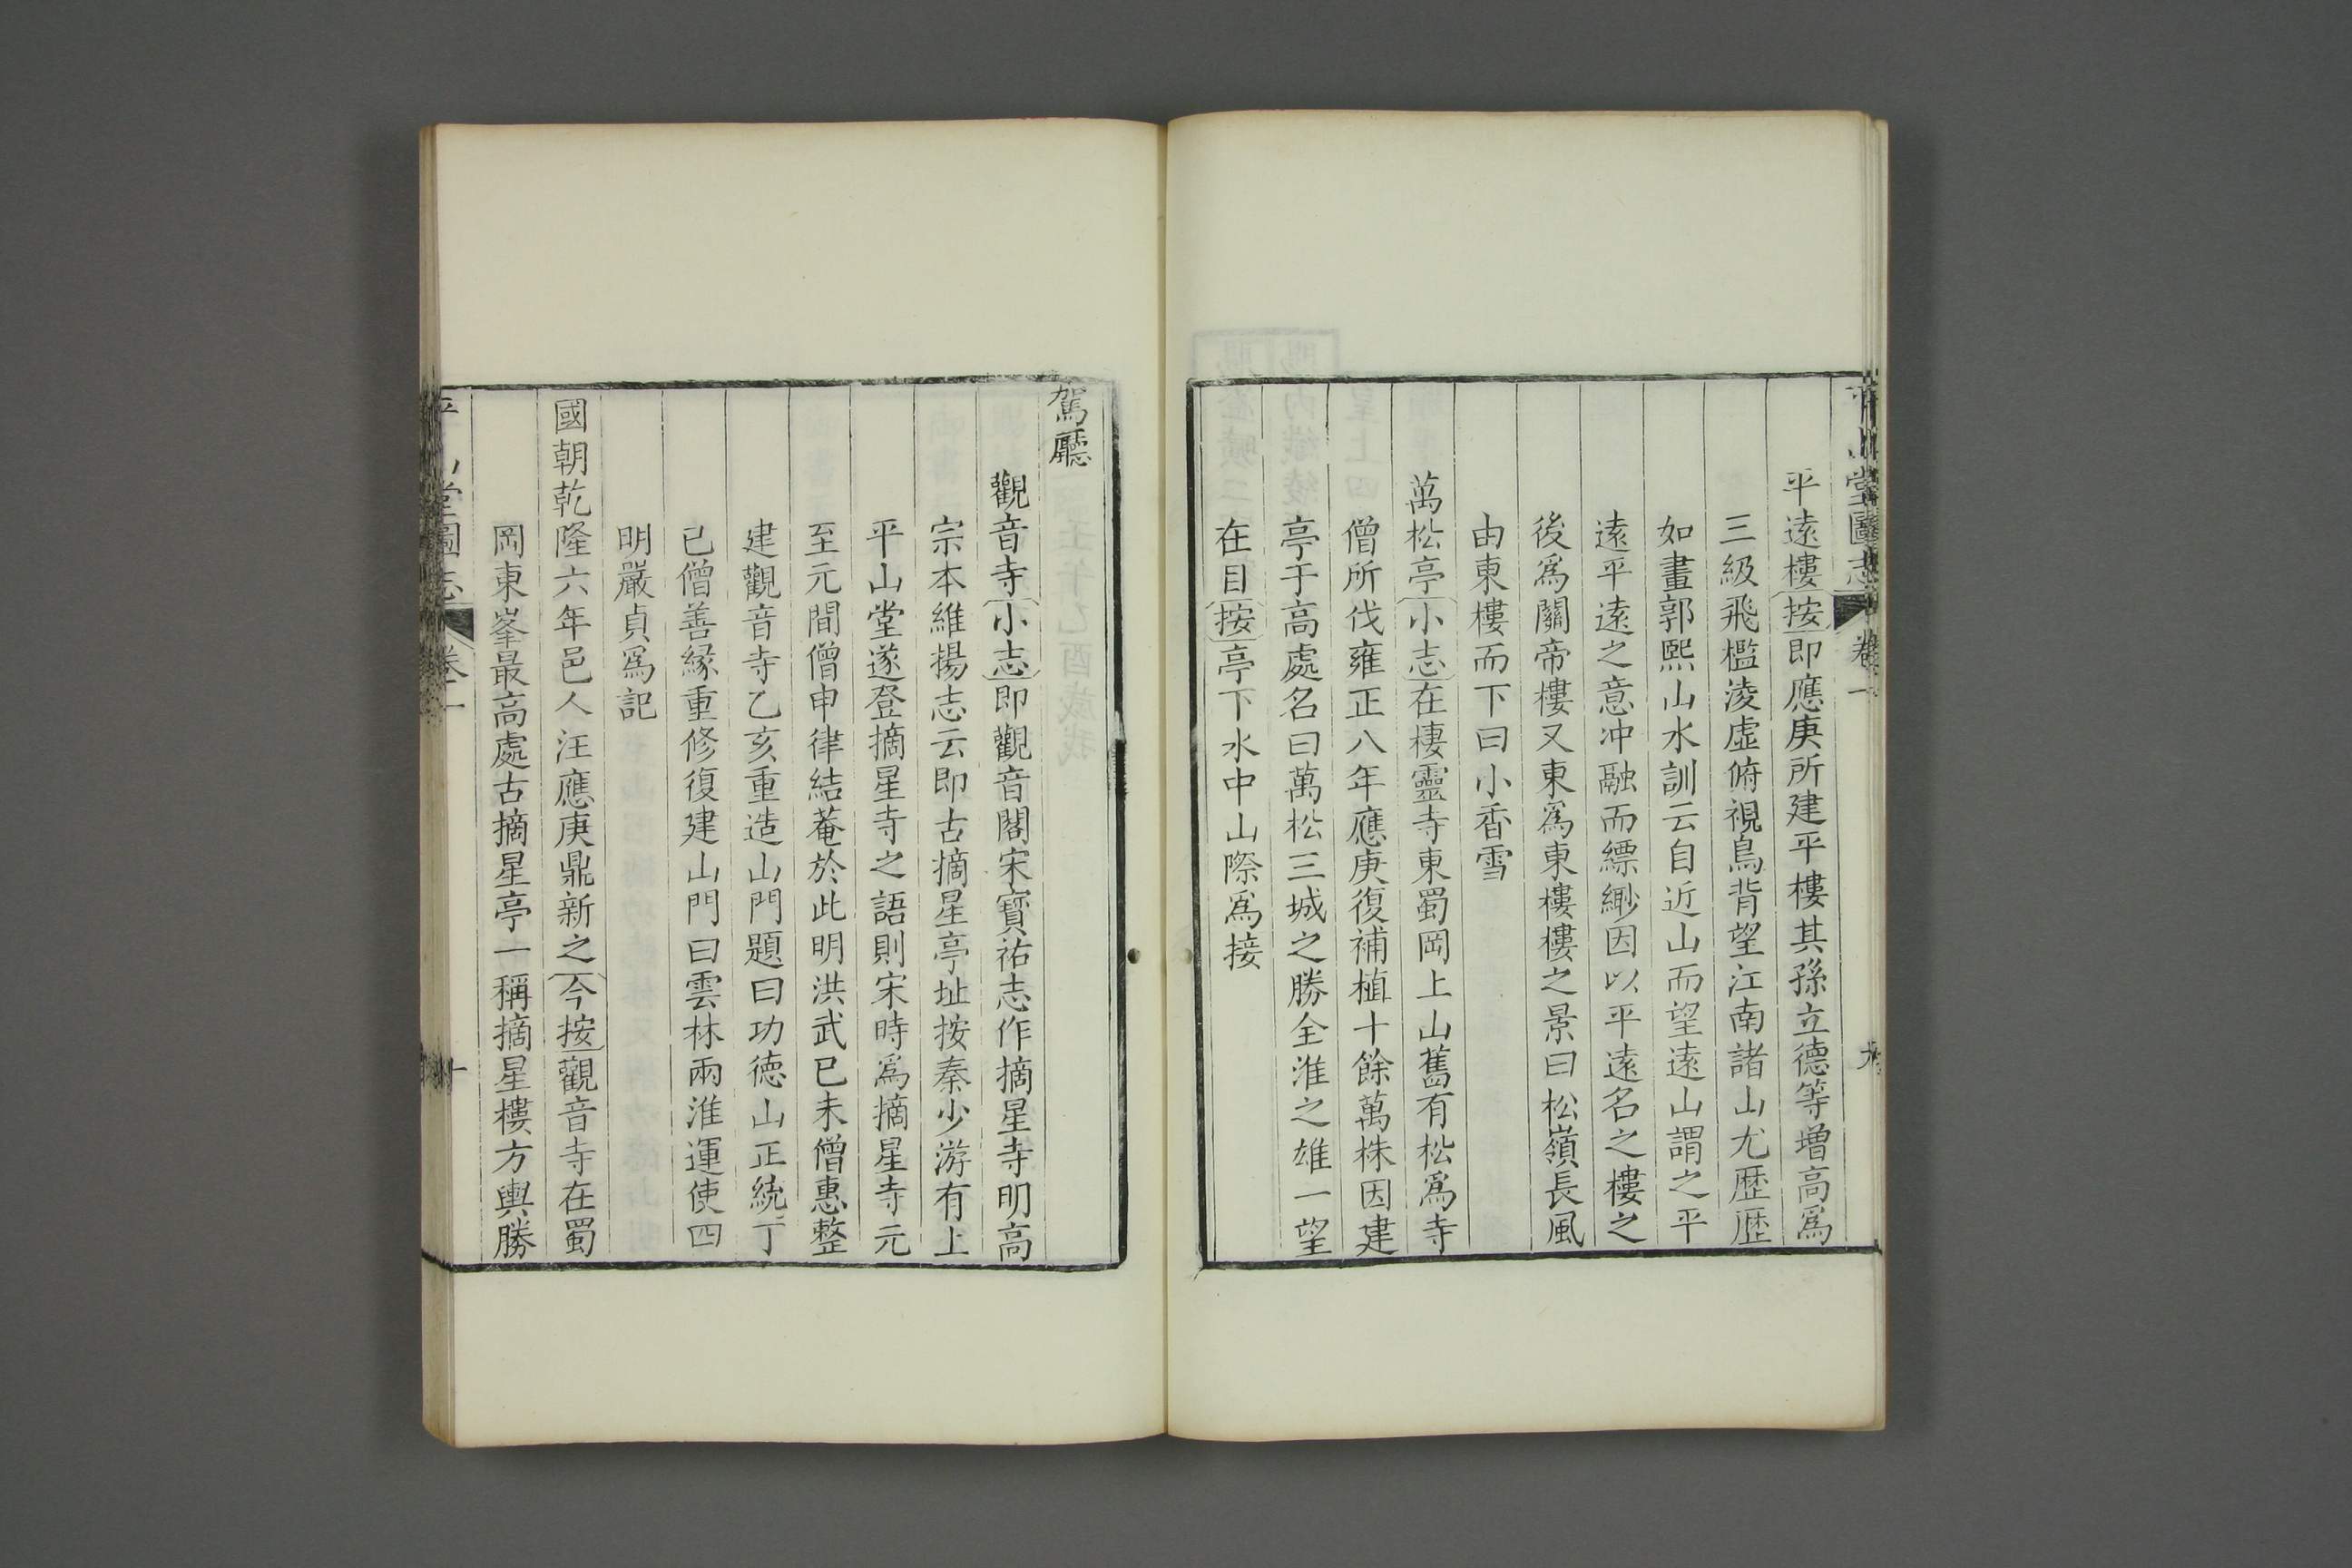 平山堂圖志 卷一 九
平遠樓按即應庚所建平樓其孫立德等增高爲
三級飛檻淩虛俯視鳥背望江南諸山尤歷歷
如畫郭熙山水訓云自近山而望遠山謂之平
遠平遠之意冲融而縹緲因以平遠名之樓之
後爲關帝樓又東爲東樓樓之景曰松嶺長風
由東樓而下曰小香雪
萬松亭小志在棲靈寺東蜀岡上山舊有松爲寺
僧所伐雍正八年應庚復補植十餘萬株因建
亭于高處名曰萬松三城之勝全淮之雄一望
在目按亭下水中山際爲接
駕廳
觀音寺小志即觀音閣宋寳祐志作摘星寺明高
宗本維揚志云即古摘星亭址按秦少游有上
平山堂遂登摘星寺之語則宋時爲摘星寺元
至元間僧申律結菴於此明洪武已未僧惠整
建觀音寺乙亥重造山門題曰功德山正統丁
已僧善緣重修復建山門曰雲林兩淮運使四
明嚴貞爲記
國朝乾隆六年邑人汪應庚鼎新之今按觀音寺在蜀
岡東峯最高處古摘星亭一稱摘星樓方輿勝
堂圖志 卷一 十